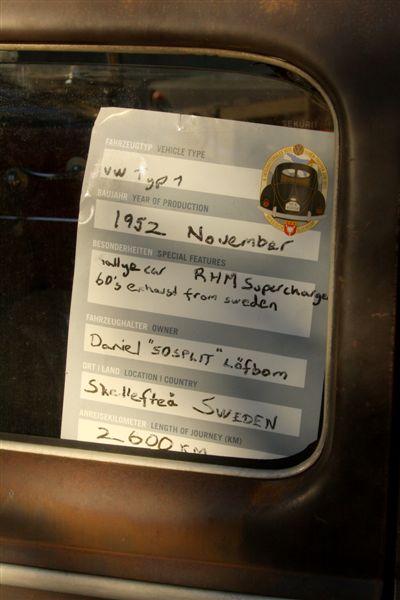 SEKURIT
FAHRZEUGTYP VEHICLE TYPE
VW Typ 1
BAUJAHR YEAR OF PRODUCTION
1952 November
BESONDERHEITEN SPECIAL FEATURES
rallye car RHM Supercharger
60's exhaust from sweden
FAHRZEUGHALTER OWNER
Daniel "SOSPLIT" Löfbom
ORT | LAND LOCATION | COUNTRY
Skellefteå SWEDEN
ANREISEKILOMETER LENGTH OF JOURNEY (KM)
2600 KM